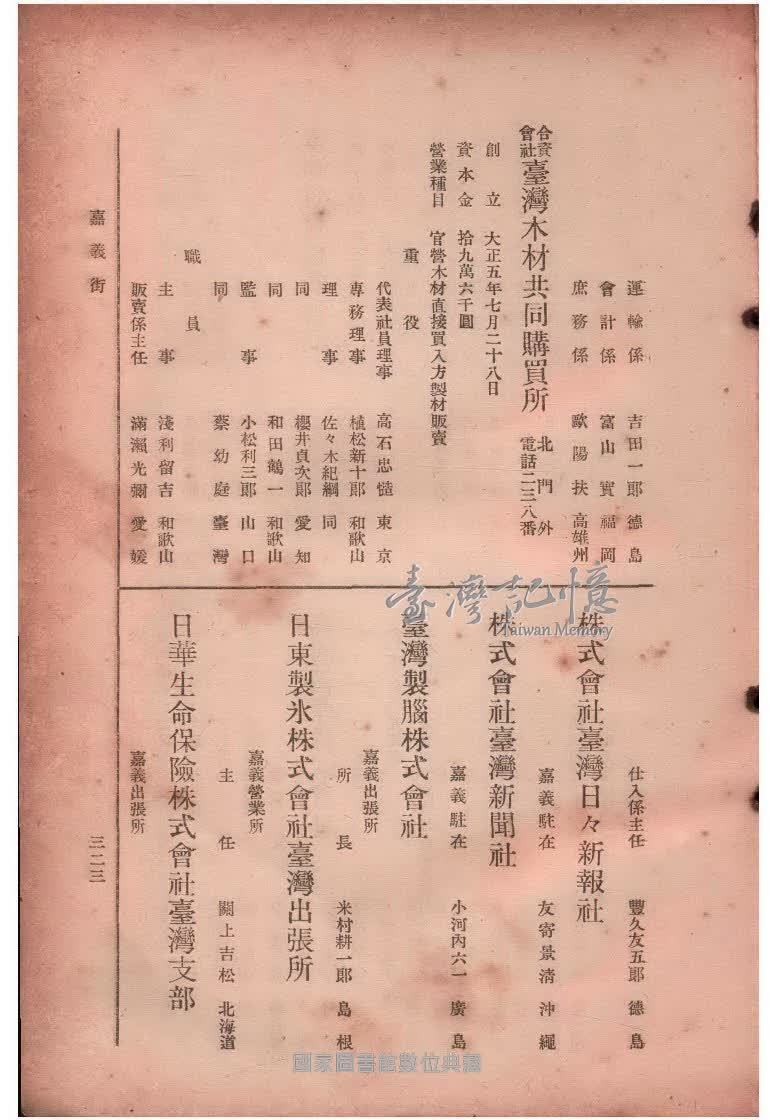 運輸係 吉田一郎 德島
會計係 富山實 福岡
庶務係 歐陽扶 高雄州
合資會社臺灣木材共同購買所 北門外 電話二三八番
創立 大正五年七月二十八日
資本金 拾九萬六千圓
營業種目 官營木材直接買入方製材販賣
重役
代表社員理事 高石忠慥 東京
專務理事 植松新十郎 和歌山
理事 佐々木紀綱 同
同 櫻井貞次郎 愛知
同 和田鶴一 和歌山
監事 小松利三郎 山口
同 蔡幼庭 臺灣
職員
主事 淺利留吉 和歌山
販賣係主任 滿瀨光彌 愛媛
仕入係主任 豐久友五郎 德島
株式會社臺灣日々新報社
嘉義駐在 友寄景淸 沖繩
株式會社臺灣新聞社
嘉義駐在 小河內六一 廣島
臺灣製腦株式會社
嘉義出張所
所長 米村耕一郎 島根
日東製氷株式會社臺灣出張所
嘉義營業所
主任 關上吉松 北海道
日華生命保險株式會社臺灣支部
嘉義出張所
嘉義街
三二三
臺灣記憶
Taiwan Memory
國家圖書館數位典藏